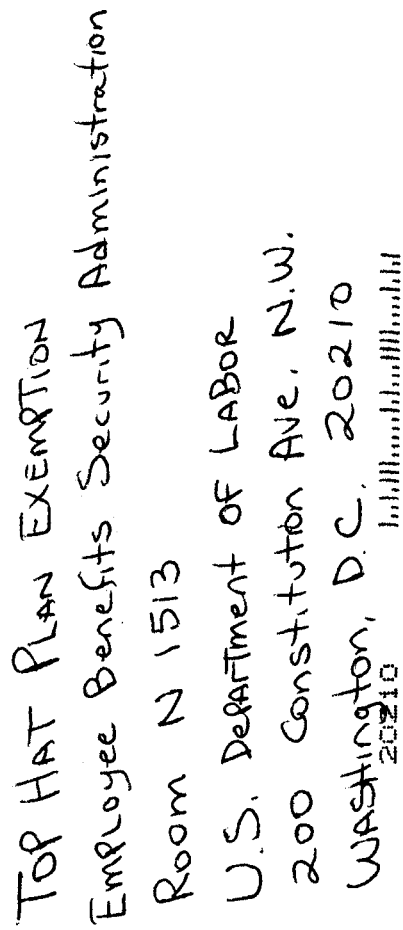 TOP HAT PLAN EXEMPTION
Employee Benefits Security Administration
Room N 1513
U.S. Department OF LABOR
200 Constitution Ave. N.W.
WASHington, D.C. 20210
20210